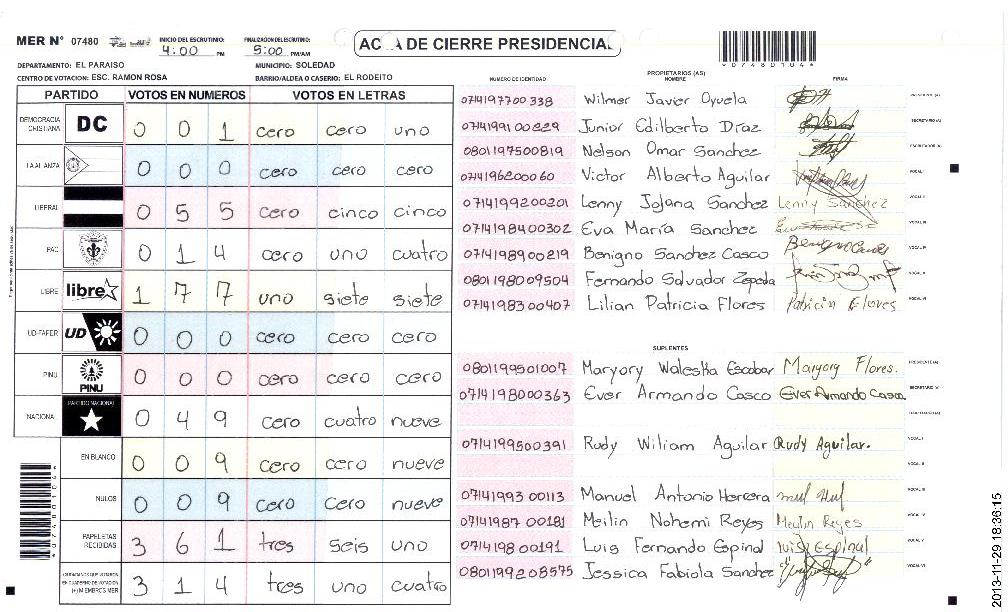 MER N° 07480 INICIO DEL ESCRUTINIO: 4:00 PM FINALIZACION DEL ESCRUTINIO: 5:00 PM/AM
ACTA DE CIERRE PRESIDENCIAL
*07480104*
DEPARTAMENTO: EL PARAISO MUNICIPIO: SOLEDAD
CENTRO DE VOTACION: ESC. RAMON ROSA BARRIO/ALDEA O CASERIO: EL RODEITO
PARTIDO VOTOS EN NUMEROS VOTOS EN LETRAS
DEMOCRACIA CRISTIANA DC 0 0 1 cero cero uno
LA ALIANZA 0 0 0 cero cero cero
LIBERAL 0 5 5 cero cinco cinco
PAC 0 1 4 cero uno cuatro
LIBRE libre 1 7 7 uno siete siete
UD-FAPER UD 0 0 0 cero cero cero
PINU PINU 0 0 0 cero cero cero
NACIONAL PARTIDO NACIONAL 0 4 9 cero cuatro nueve
EN BLANCO 0 0 9 cero cero nueve
NULOS 0 0 9 cero cero nueve
PAPELETAS RECIBIDAS 3 6 1 tres seis uno
CIUDADANOS QUE VOTARON EN CUADERNO DE VOTACION (+) MIEMBROS MER 3 1 4 tres uno cuatro
PROPIETARIOS (AS)
NUMERO DE IDENTIDAD NOMBRE FIRMA
0714197700338 Wilmer Javier Oyuela
0714199100229 Junior Edilberto Díaz SECRETARIO (A)
0801197500819 Nelson Omar Sanchez ESCRUTADOR (A)
0714196200060 Victor Alberto Aguilar VOCAL I
0714199200201 Lenny Jojana Sanchez Lenny Sanchez VOCAL II
0714198400302 Eva María Sanchez VOCAL III
0714198900219 Benigno Sanchez Casco VOCAL IV
0801198009504 Fernando Salvador Zepeda VOCAL V
0714198300407 Lilian Patricia Flores Patricia Flores VOCAL VI
SUPLENTES
0801199501007 Maryory Waleska Escobar Maryory Flores. PRESIDENTE (A)
0714198000363 Ever Armando Casco Ever Armando Casco SECRETARIO (A)
ESCRUTADOR (A)
0714199500391 Rudy Wiliam Aguilar Rudy Aguilar. VOCAL I
VOCAL II
0714199300113 Manuel Antonio Herrera VOCAL III
0714198700181 Meilin Nohemi Reyes Meilin Reyes VOCAL IV
071419800191 Luis Fernando Espinal Luis Espinal VOCAL V
0801199208575 Jessica Fabiola Sanchez VOCAL VI
*07480104*
2013-11-29 18:36:15